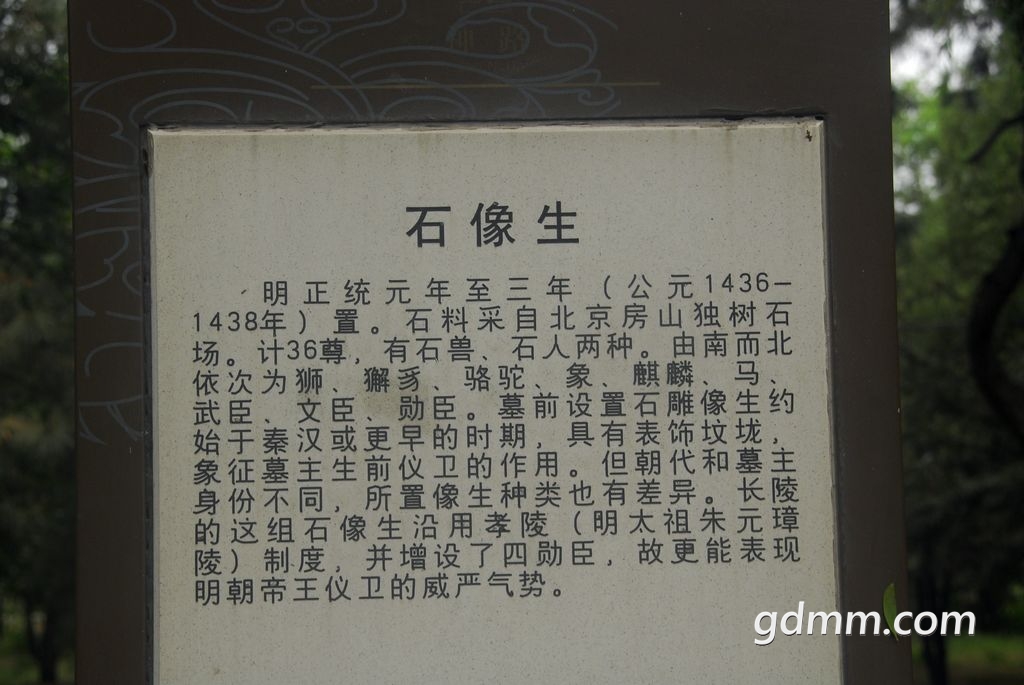 石像生
明正统元年至三年（公元1436—
1438年）置。石料采自北京房山独树石
场。计36尊，有石兽、石人两种。由南而北
依次为狮、獬豸、骆驼、象、麒麟、马、
武臣、文臣、勋臣。墓前设置石雕像生约
始于秦汉或更早的时期，具有表饰坟垅，
象征墓主生前仪卫的作用。但朝代和墓主
身份不同，所置像生种类也有差异。长陵
的这组石像生沿用孝陵（明太祖朱元璋
陵）制度，并增设了四勋臣，故更能表现
明朝帝王仪卫的威严气势。
gdmm.com